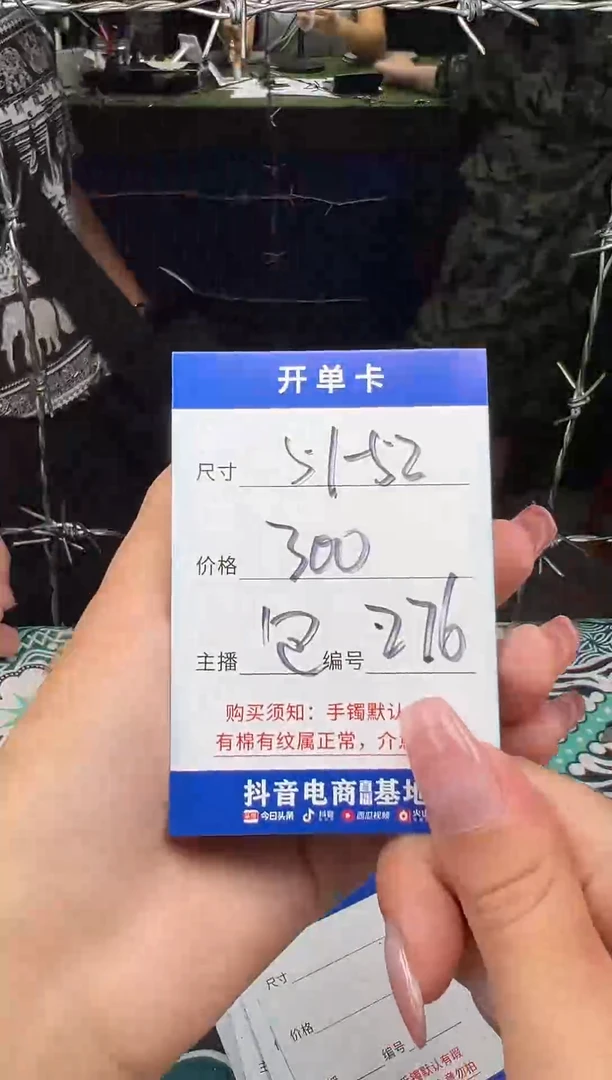 开单卡
尺寸 51-52
价格 300
主播 编号 276
购买须知：手镯默认
有棉有纹属正常，介意
抖音电商直播基地
今日头条 抖音 西瓜视频 火山
尺寸
价格
主
编号
手镯默认有瑕
意勿拍